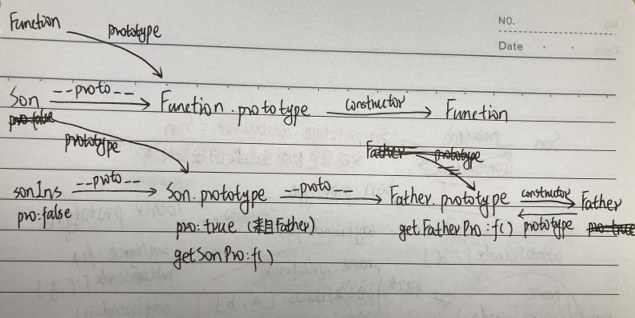 NO.
Date
Function
prototype
Son --proto-- Function.prototype constructor Function
pro:false
prototype
Father prototype
sonIns --proto-- Son.prototype --proto-- Father.prototype constructor Father
pro:false pro:true (来自Father) get.FatherPro:f() prototype pro:true
getSonPro:f()